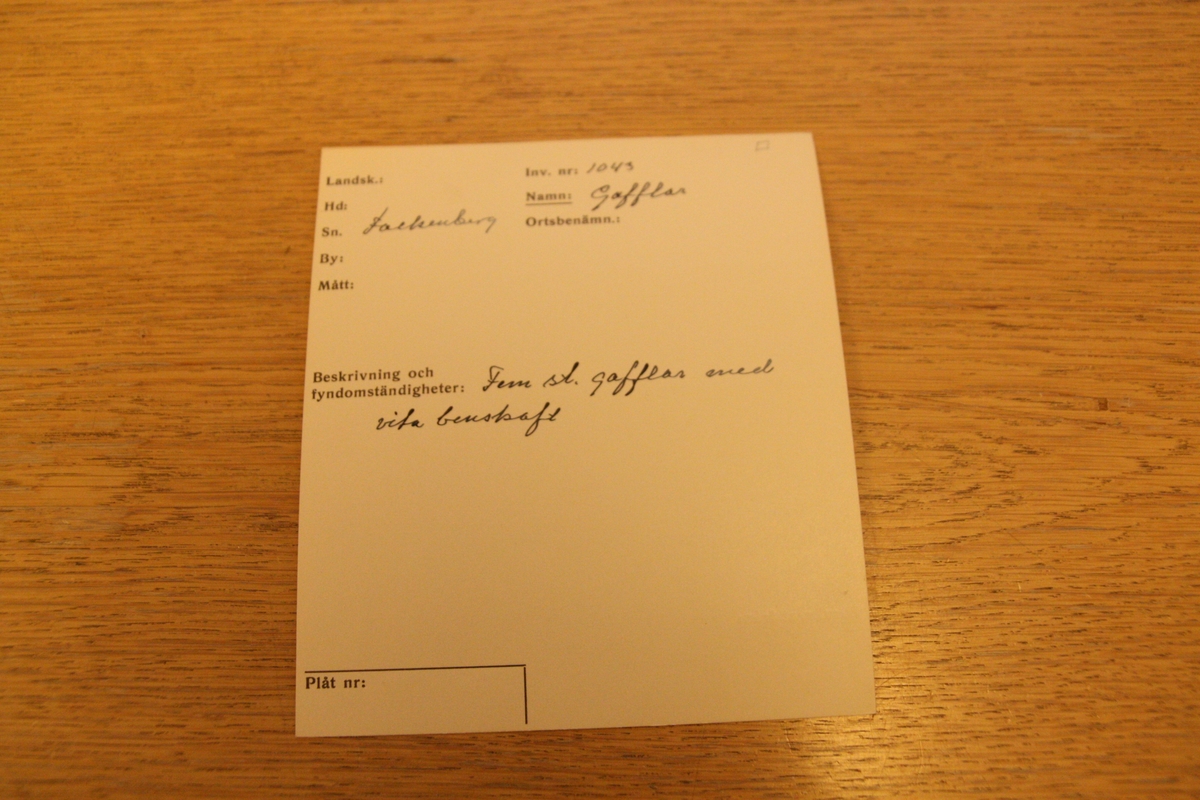 Landsk.:
Hd:
Sn. Fackenberg
By:
Mått:
Inv. nr: 1043
Namn: Gafflar
Ortsbenämn.:
Beskrivning och
fyndomständigheter: Fem st. gafflar med
vita benskaft
Plåt nr: